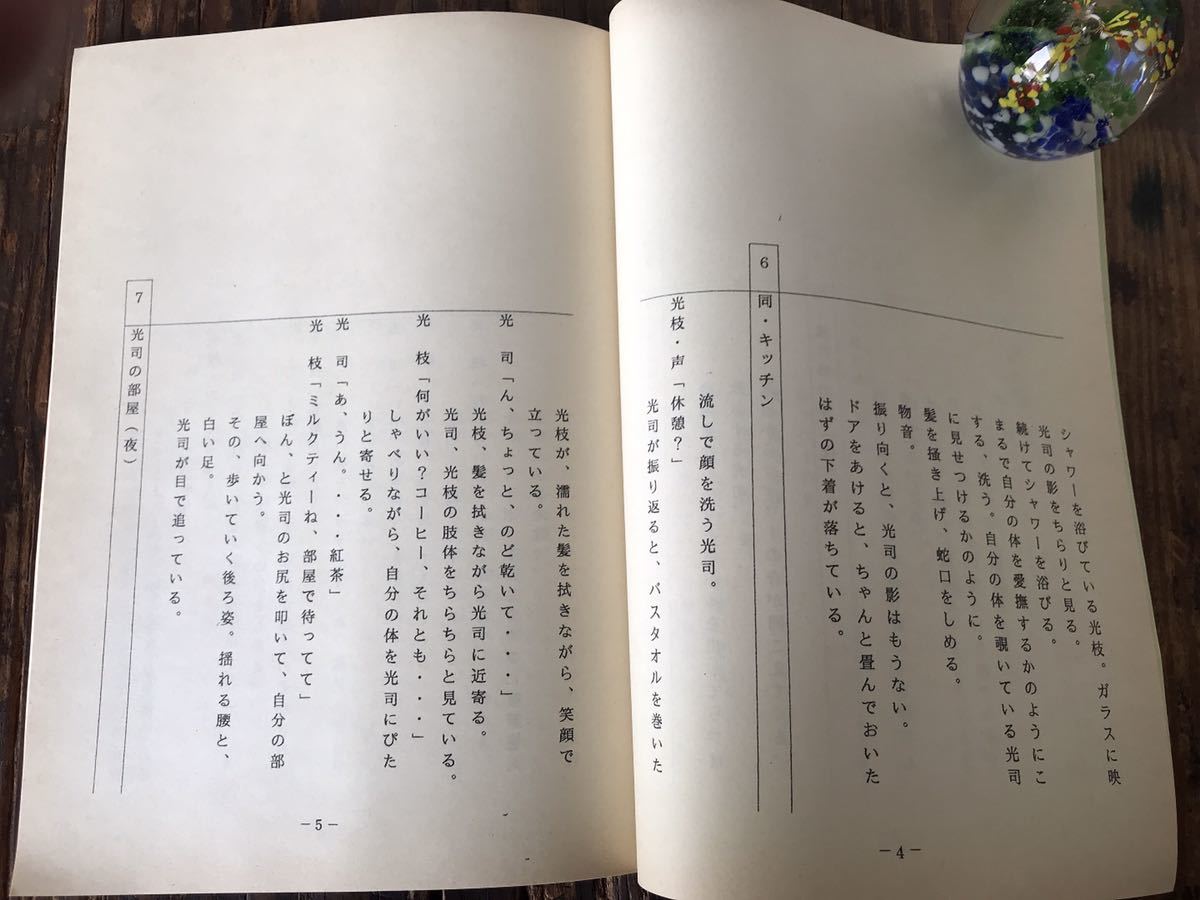 シャワーを浴びている光枝。ガラスに映
光司の影をちらりと見る。
続けてシャワーを浴びる。
まるで自分の体を愛撫するかのようにこ
する、洗う。自分の体を覗いている光司
に見せつけるかのように。
髪を掻き上げ、蛇口をしめる。
物音。
振り向くと、光司の影はもうない。
ドアをあけると、ちゃんと畳んでおいた
はずの下着が落ちている。
6 同・キッチン
流しで顔を洗う光司。
光枝・声「休憩?」
光司が振り返ると、バスタオルを巻いた
－4－
光枝が、濡れた髪を拭きながら、笑顔で
立っている。
光　司「ん、ちょっと、のど乾いて・・・」
光枝、髪を拭きながら光司に近寄る。
光司、光枝の肢体をちらちらと見ている。
光　枝「何がいい？コーヒー、それとも・・・」
しゃべりながら、自分の体を光司にぴた
りと寄せる。
光　司「あ、うん。・・・紅茶」
光　枝「ミルクティーね、部屋で待ってて」
ぽん、と光司のお尻を叩いて、自分の部
屋へ向かう。
その、歩いていく後ろ姿。揺れる腰と、
白い足。
光司が目で追っている。
7 光司の部屋（夜）
－5－